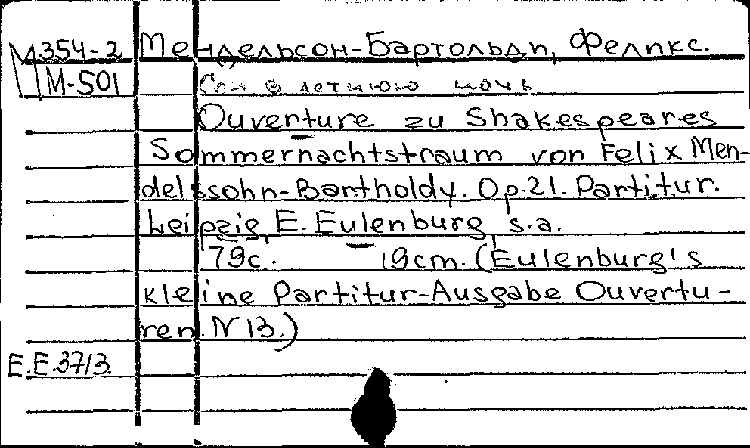 М354-2 Мендельсон-Бартольди, Феликс.
М-501 Сон в летнюю ночь
Ouventure zu Shakespeares
Sommernachtstraum von Felix Men-
delssohn-Bartholdy. Op.21. Partitur.
Leipzig, E. Eulenburg, s.a.
79c. 19cm. (Eulenburg's
kleine Partitur-Ausgabe Ouvertu-
ren. N 13.)
E.E.3713